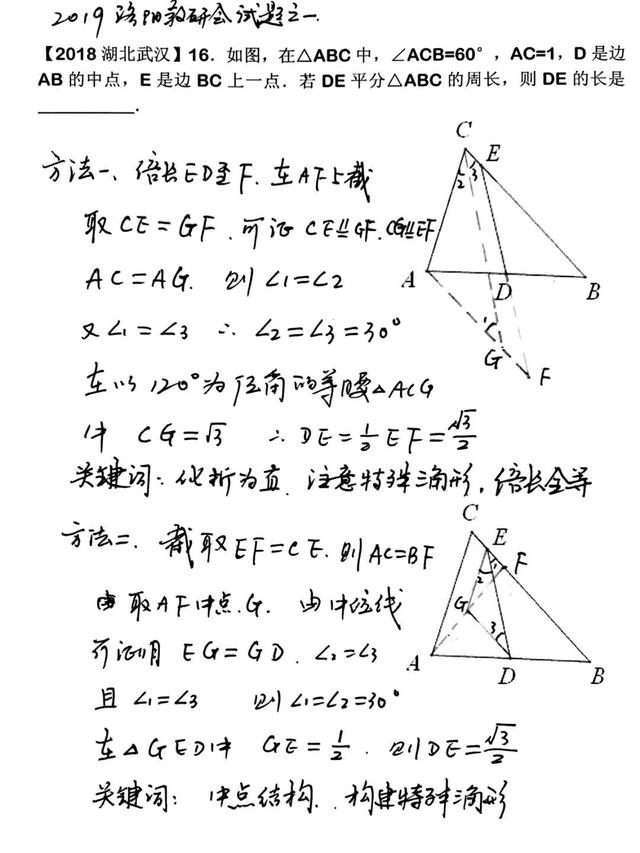 2019 洛阳教研会试题之一.
【2018 湖北武汉】16. 如图，在△ABC 中，∠ACB=60°，AC=1，D 是边
AB 的中点，E 是边 BC 上一点．若 DE 平分△ABC 的周长，则 DE 的长是
________．
方法一、倍长ED至F. 在AF上截
取CE=GF. 可证 CE∥GF. CG∥EF
AC=AG. 则∠1=∠2
又∠1=∠3 ∴∠2=∠3=30°
在以120°为顶角的等腰△ACG
中 CG=√3 ∴DE=1/2 EF=√3/2
关键词：化折为直. 注意特殊三角形，倍长全等
C
E
2
3
A
D
B
1
G
F
方法二、截取EF=CE. 则AC=BF
取AF中点.G. 由中位线
可证明 EG=GD. ∠2=∠3
且∠1=∠3 则∠1=∠2=30°
在△GED中 GE=1/2. 则DE=√3/2
关键词：中点结构. 构建特殊三角形
C
E
F
1
2
G
3
A
D
B